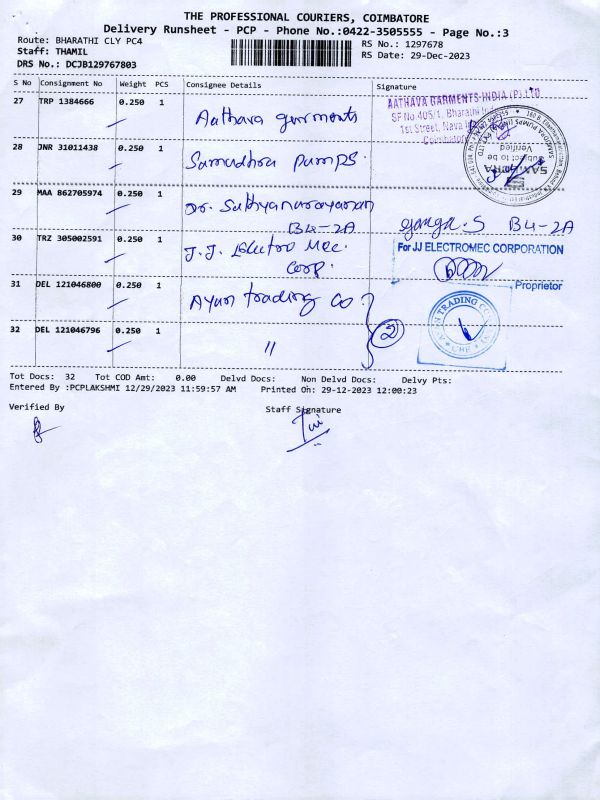 THE PROFESSIONAL COURIERS, COIMBATORE
Delivery Runsheet - PCP - Phone No.:0422-3505555 - Page No.:3
Route: BHARATHI CLY PC4
RS No.: 1297678
Staff: THAMIL
RS Date: 29-Dec-2023
DRS No.: DCJB129767803
S No Consignment No Weight PCS Consignee Details Signature
27 TRP 1384666 0.250 1 Aathava garments
AATHAVA GARMENTS INDIA (P) LTD
SF No.405/1, Bharathi
1st Street, Nava
Coimbator
28 JNR 31011438 0.250 1 Samudhra Pumps.
SAMUDRA PUMPS
Subject to be
Verified
29 MAA 862705974 0.250 1 Dr. Sathyanarayanan
B4-2A
Ganga.S B4-2A
30 TRZ 305002591 0.250 1 J.J. Electro Mec.
Corp.
For JJ ELECTROMEC CORPORATION
Proprietor
31 DEL 121046800 0.250 1 Ayan trading Co
TRADING CO
CBE
32 DEL 121046796 0.250 1 "
2
Tot Docs: 32 Tot COD Amt: 0.00 Delvd Docs: Non Delvd Docs: Delvy Pts:
Entered By :PCPLAKSHMI 12/29/2023 11:59:57 AM Printed On: 29-12-2023 12:00:23
Verified By Staff Signature